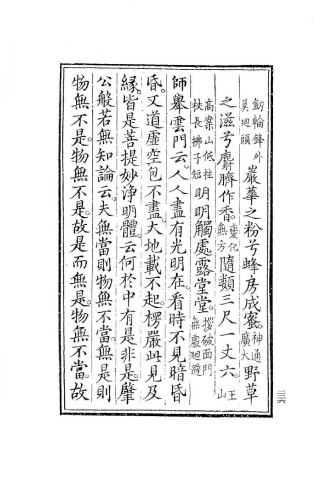 劒輪鋒外莫迴頭 巖華之粉兮蜂房成蜜。神通廣大 野草
之滋兮麝臍作香。變化無方 隨類三尺一丈六。王山
高案山低柱杖長拂子短 明明觸處露堂堂。撥破面門無處迴避
師舉雲門云。人人盡有光明在。看時不見暗昏
昏。又道虛空包不盡大地載不起。楞嚴此見及
緣。皆是菩提妙淨明體。云何於中有是非是。肇
公般若無知論云。夫無當則物無不當。無是則
物無不是。物無不是。故是而無是。物無不當。故
三六